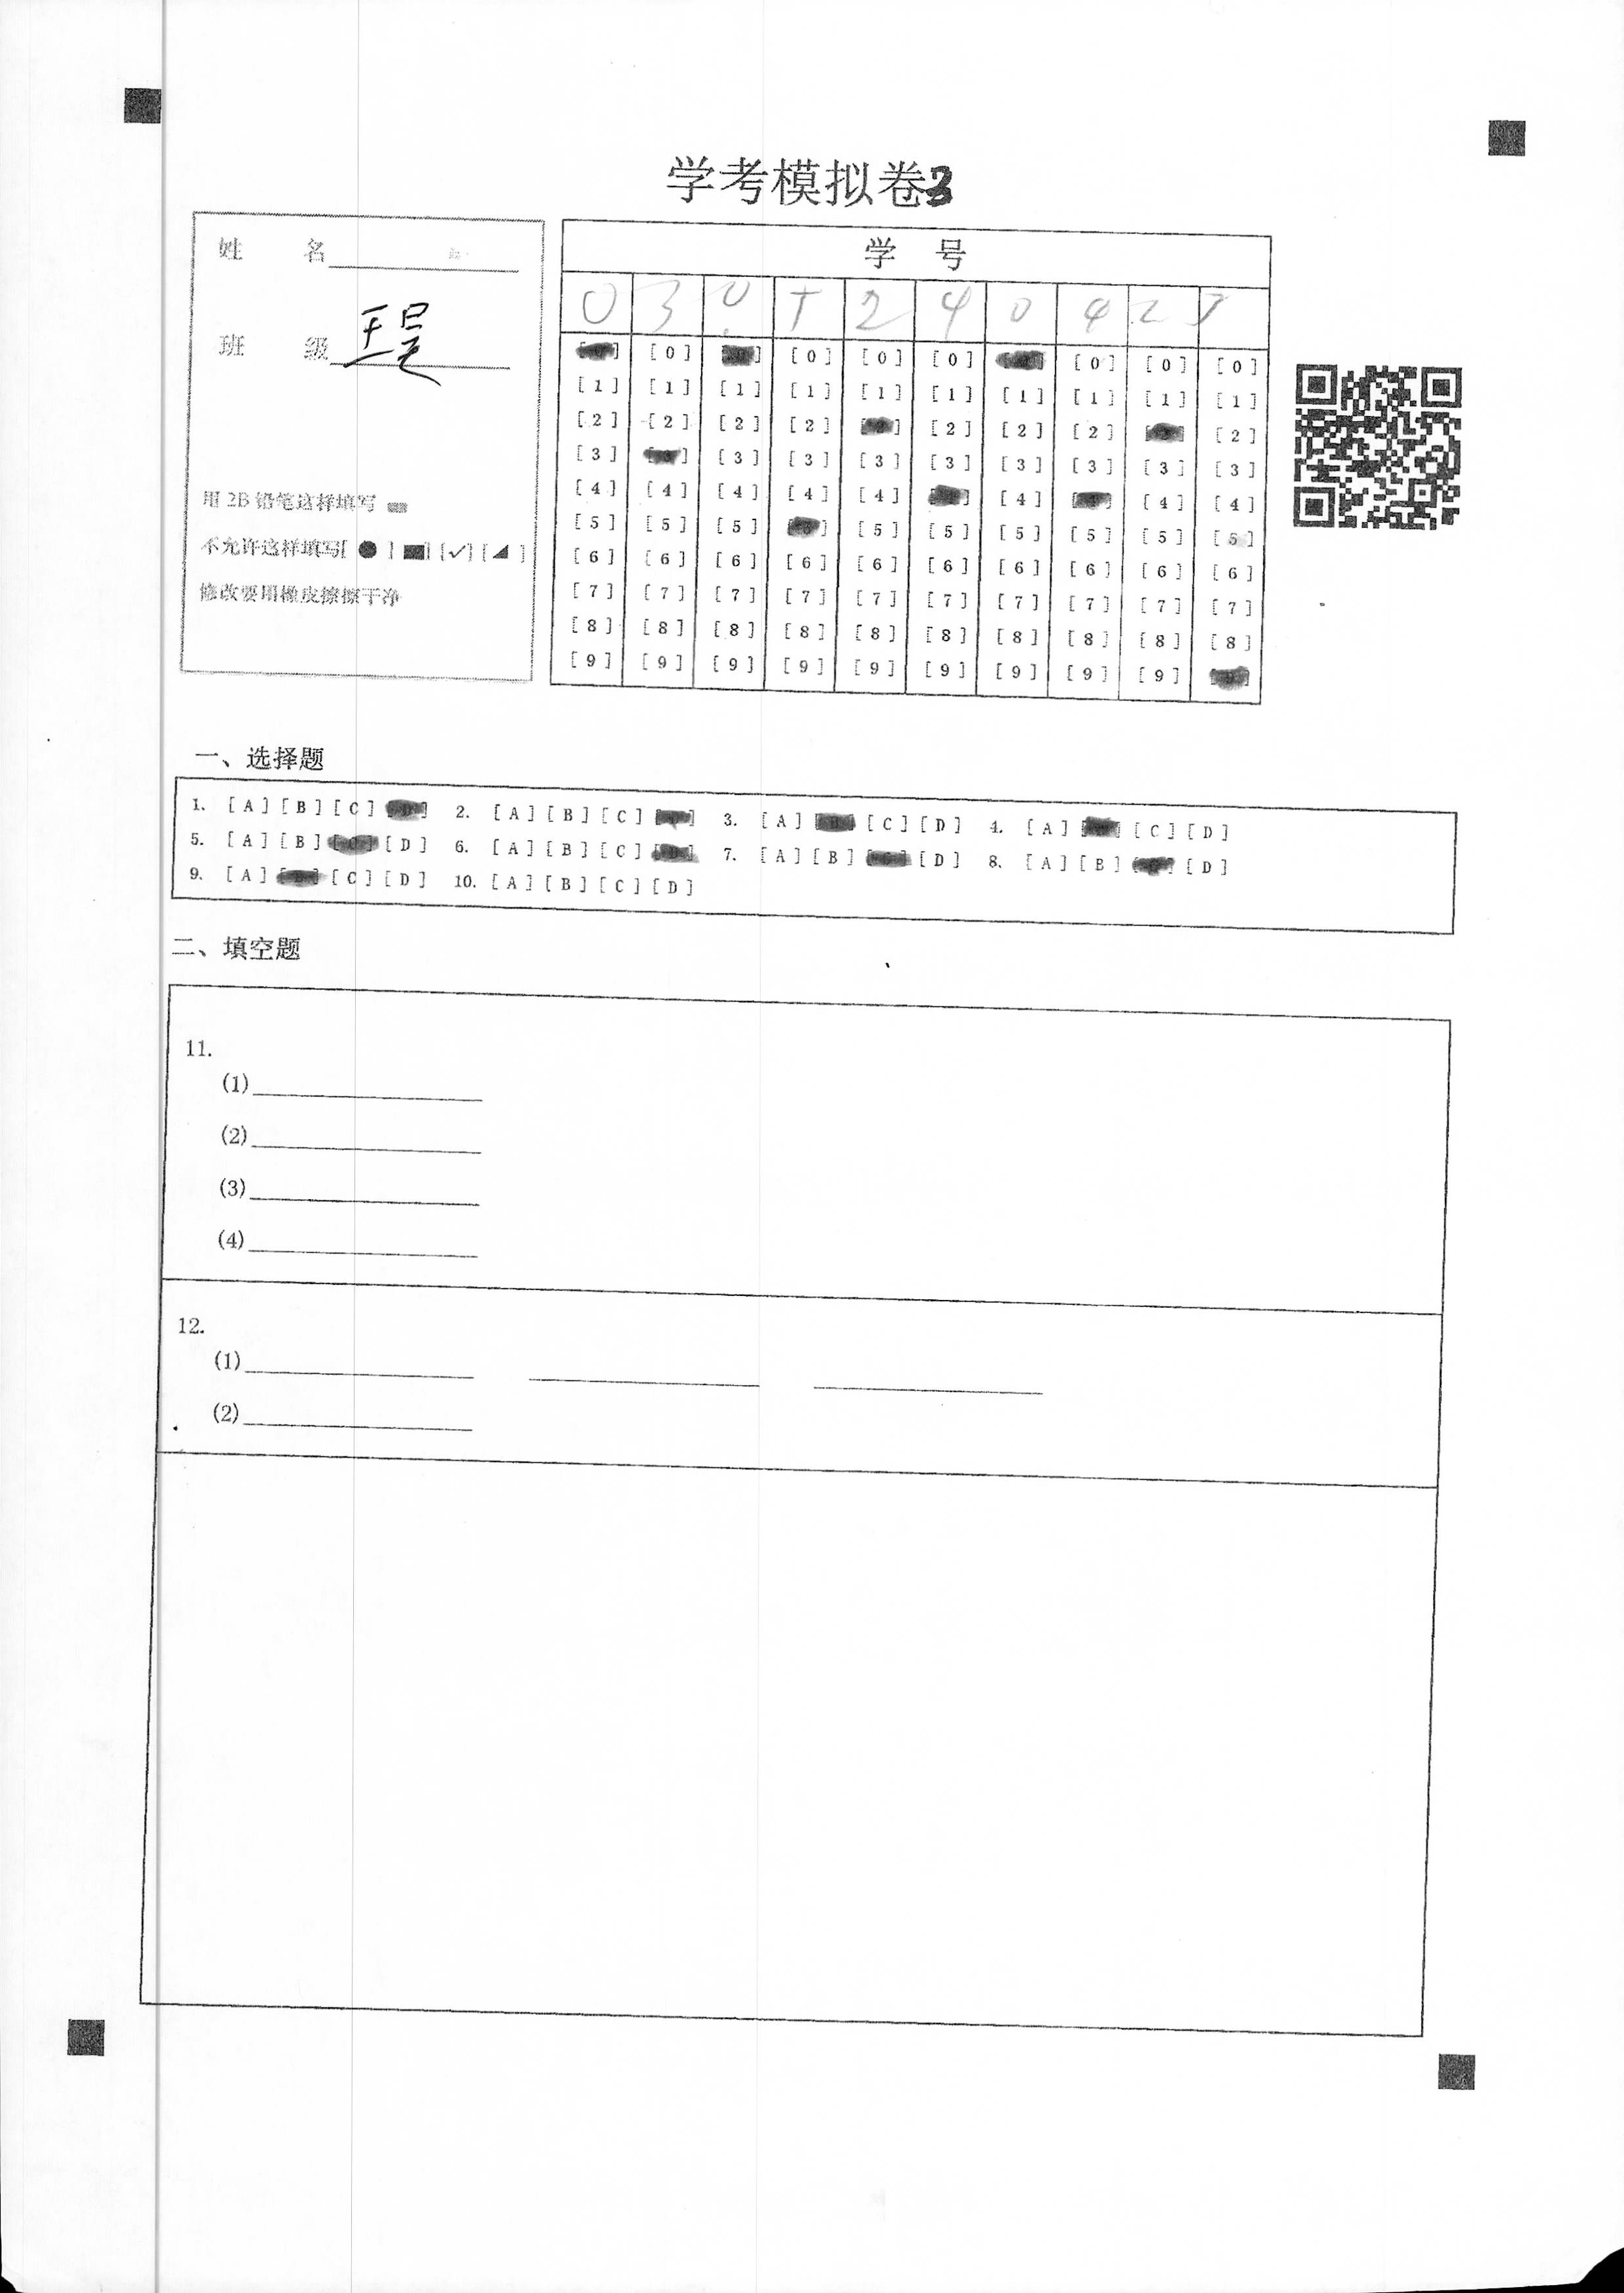 学考模拟卷3
姓 名
班 级
用 2B 铅笔这样填写
不允许这样填写[ ● ] [✓] [ ]
修改要用橡皮擦擦干净
学 号
0 3 0 5 2 4 0 4 2
[0] [0] [0] [0] [0] [0] [0]
[1] [1] [1] [1] [1] [1] [1] [1] [1] [1]
[2] [2] [2] [2] [2] [2] [2] [2]
[3] [3] [3] [3] [3] [3] [3] [3] [3]
[4] [4] [4] [4] [4] [4] [4] [4]
[5] [5] [5] [5] [5] [5] [5] [5] [5]
[6] [6] [6] [6] [6] [6] [6] [6] [6] [6]
[7] [7] [7] [7] [7] [7] [7] [7] [7] [7]
[8] [8] [8] [8] [8] [8] [8] [8] [8] [8]
[9] [9] [9] [9] [9] [9] [9] [9] [9]
一、选择题
1. [A] [B] [C] 2. [A] [B] [C] 3. [A] [C] [D] 4. [A] [C] [D]
5. [A] [B] [D] 6. [A] [B] [C] 7. [A] [B] [D] 8. [A] [B] [D]
9. [A] [C] [D] 10. [A] [B] [C] [D]
二、填空题
11.
(1)
(2)
(3)
(4)
12.
(1)
(2)